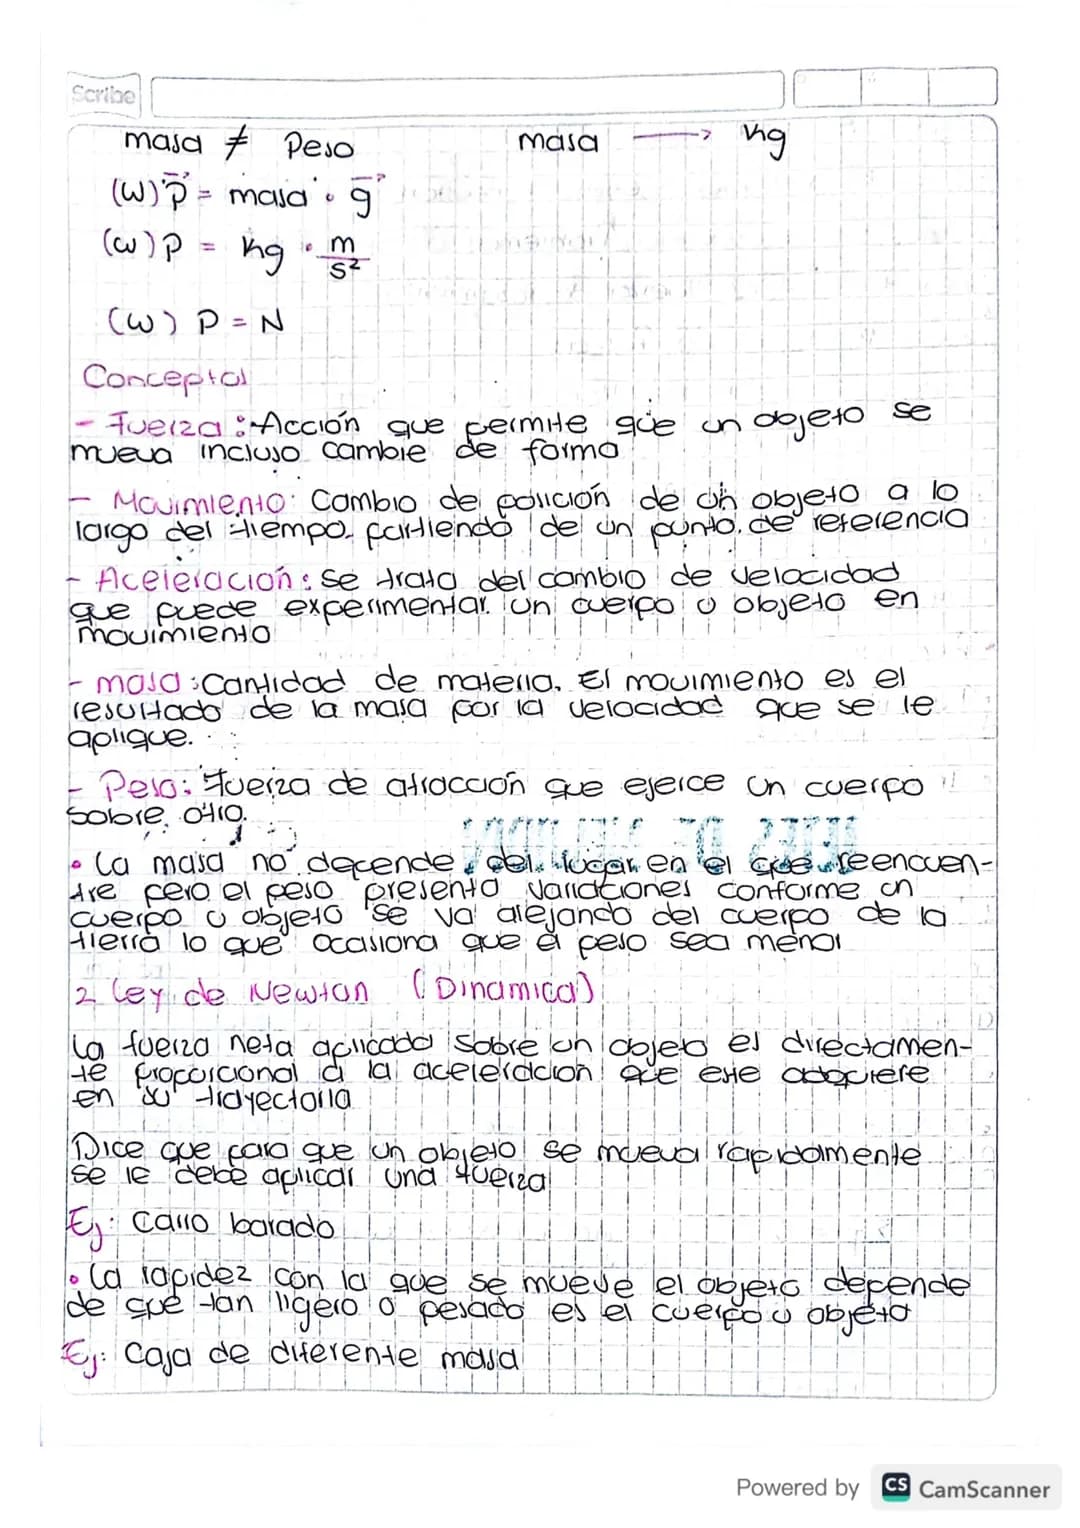 Scribe
masa ≠ Peso masa → kg
(W) P⃗ = masa · g⃗
(W) P = kg · m/s²
(W) P = N
Conceptos
- Fuerza: Acción que permite que un objeto se
mueva incluso cambie de forma
- Movimiento: Cambio de posición de un objeto a lo
largo del tiempo. partiendo de un punto de referencia
- Aceleración: se trata del cambio de velocidad
que puede experimentar un cuerpo u objeto en
movimiento
- masa: Cantidad de materia. El movimiento es el
resultado de la masa por la velocidad que se le
aplique.
- Peso: Fuerza de atracción que ejerce un cuerpo
sobre otro.
• La masa no depende del lugar en el que se encuen-
tre pero el peso presenta variaciones conforme un
cuerpo u objeto se va alejando del cuerpo de la
tierra lo que ocasiona que el peso sea menor
2 Ley de Newton (Dinamica)
La fuerza neta aplicada sobre un objeto es directamen-
te proporcional a la aceleración que este adquiere
en su trayectoria
Dice que para que un objeto se mueva rapidamente
se le debe aplicar una fuerza
Ej: Carro barado
• La rapidez con la que se mueve el objeto depende
de que tan ligero o pesado es el cuerpo u objeto
Ej: Caja de diferente masa
Powered by CS CamScanner